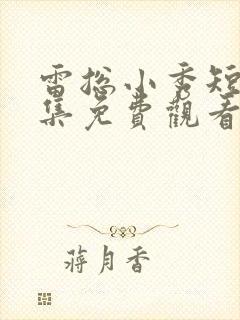 雷總小秀短
集免費觀看
蔣月香